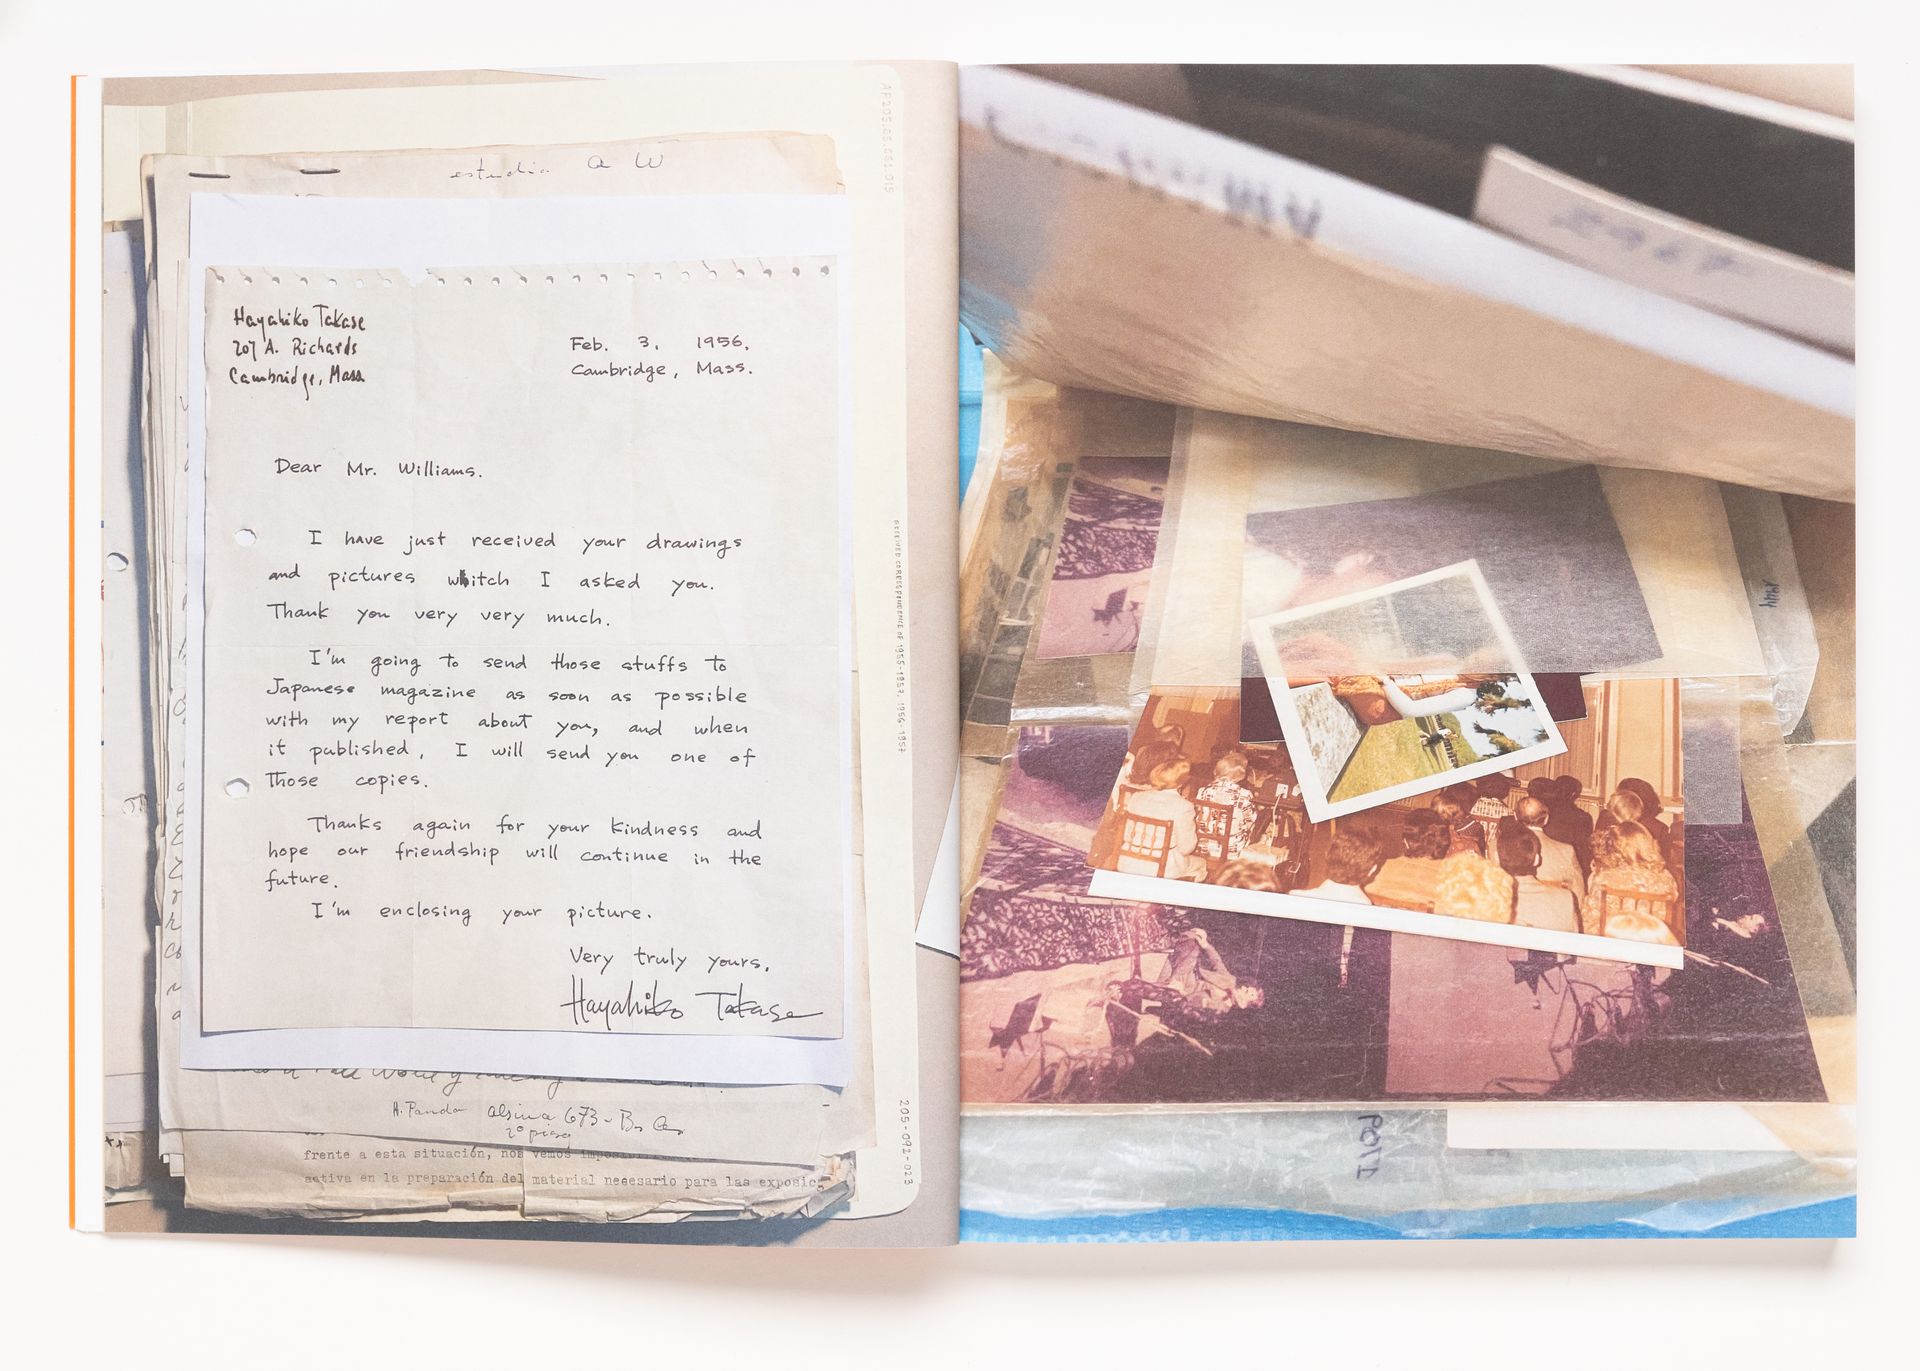 AP205.S5.SS1.015
estudio a W
Hayahiko Takase
207 A. Richards
Cambridge, Mass
Feb. 3, 1956.
Cambridge, Mass.
Dear Mr. Williams.
I have just received your drawings
and pictures whitch I asked you.
Thank you very very much.
I'm going to send those stuffs to
Japanese magazine as soon as possible
with my report about you, and when
it published, I will send you one of
those copies.
Thanks again for your kindness and
hope our friendship will continue in the
future.
I'm enclosing your picture.
Very truly yours,
Hayahiko Takase
RECEIVED CORRESPONDENCE OF 1955-1957, 1956-1957
A. Pando Alsina 673 - Bs As
2º piso
frente a esta situación, nos vemos
activa en la preparación del material necesario para las exposic
205-092-023
POLI